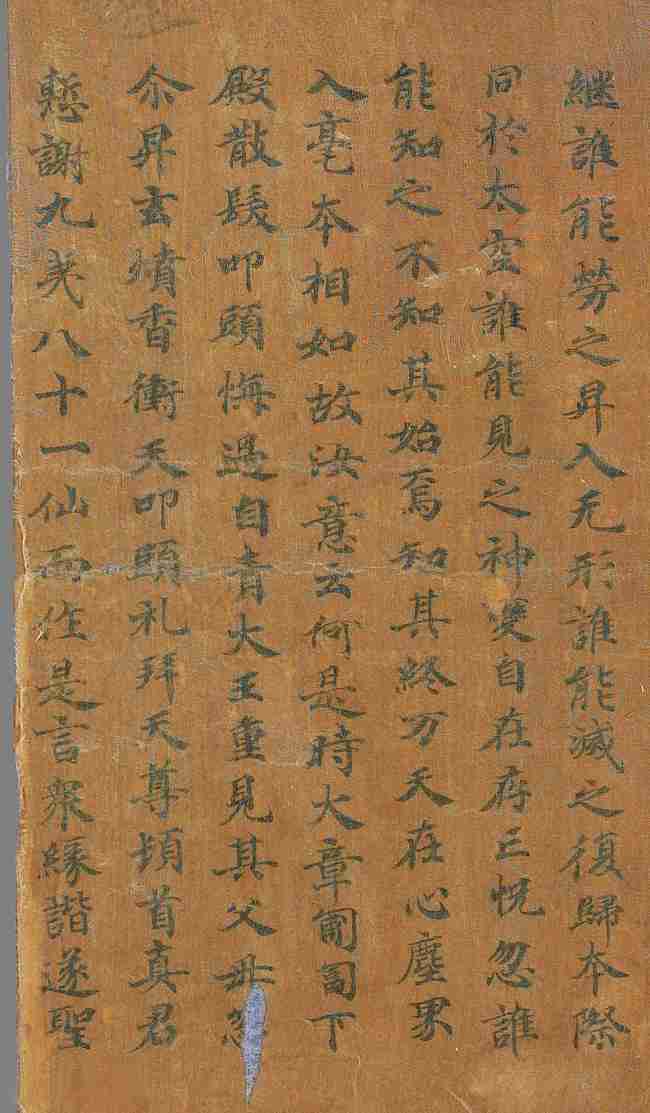 継誰能勞之昇入无形誰能滅之復歸本際
同於太空誰能見之神變自在存亡怳忽誰
能知之不知其始焉知其終万天在心塵界
入毫本相如故汝意云何是時大章匍匐下
殿散髮叩頭悔過自責大王重見其父母忽
尒昇玄墳香衝天叩頭礼拜天尊頓首真君
慙謝九炁八十一仙而作是言衆緣諧遂聖